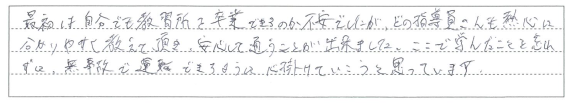 最初は自分でも教習所を卒業できるのか不安でしたが、どの指導員さんも熱心に
分かりやすく教えて頂き、安心して通うことが出来ました。ここで学んだことを忘れ
ずに、無事故で運転できるように心掛けていこうと思っています。